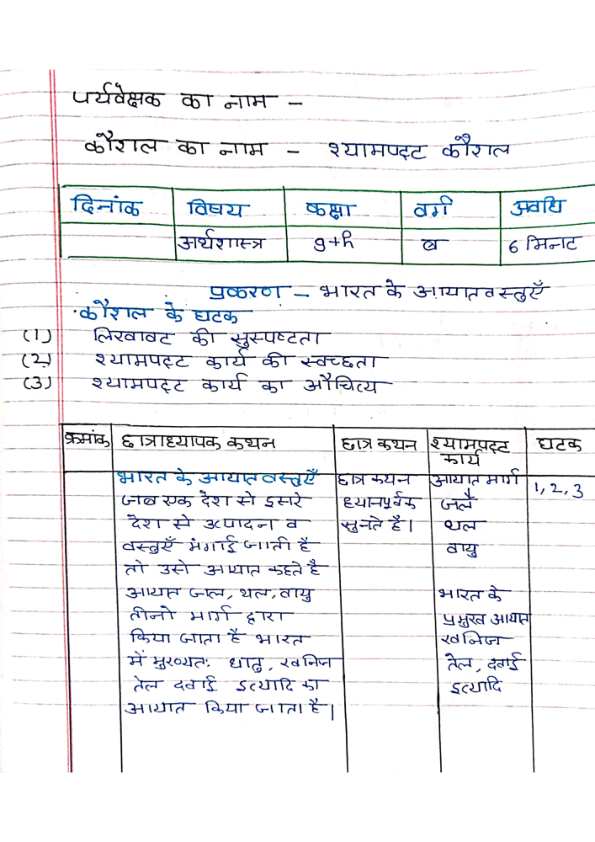 पर्यवेक्षक का नाम –
कौशल का नाम – श्यामपट्ट कौशल
दिनांक विषय कक्षा वर्ग अवधि
अर्थशास्त्र 9th ब 6 मिनट
प्रकरण – भारत के आयात वस्तुएँ
कौशल के घटक
(1) लिखावट की सुस्पष्टता
(2) श्यामपट्ट कार्य की स्वच्छता
(3) श्यामपट्ट कार्य का औचित्य
क्रमांक छात्राध्यापक कथन छात्र कथन श्यामपट्ट कार्य घटक
भारत के आयात वस्तुएँ
जब एक देश से दूसरे
देश से उत्पादन व
वस्तुएँ मंगाई जाती है
तो उसे आयात कहते है
आयात जल, थल, वायु
तीनो मार्ग द्वारा
किया जाता है भारत
में मुख्यतः धातु, खनिज
तेल दवाई इत्यादि का
आयात किया जाता है।
छात्र कथन
ध्यानपूर्वक
सुनते है।
आयात मार्ग
जल
थल
वायु
भारत के
प्रमुख आयात
खनिज
तेल, दवाई
इत्यादि
1, 2, 3